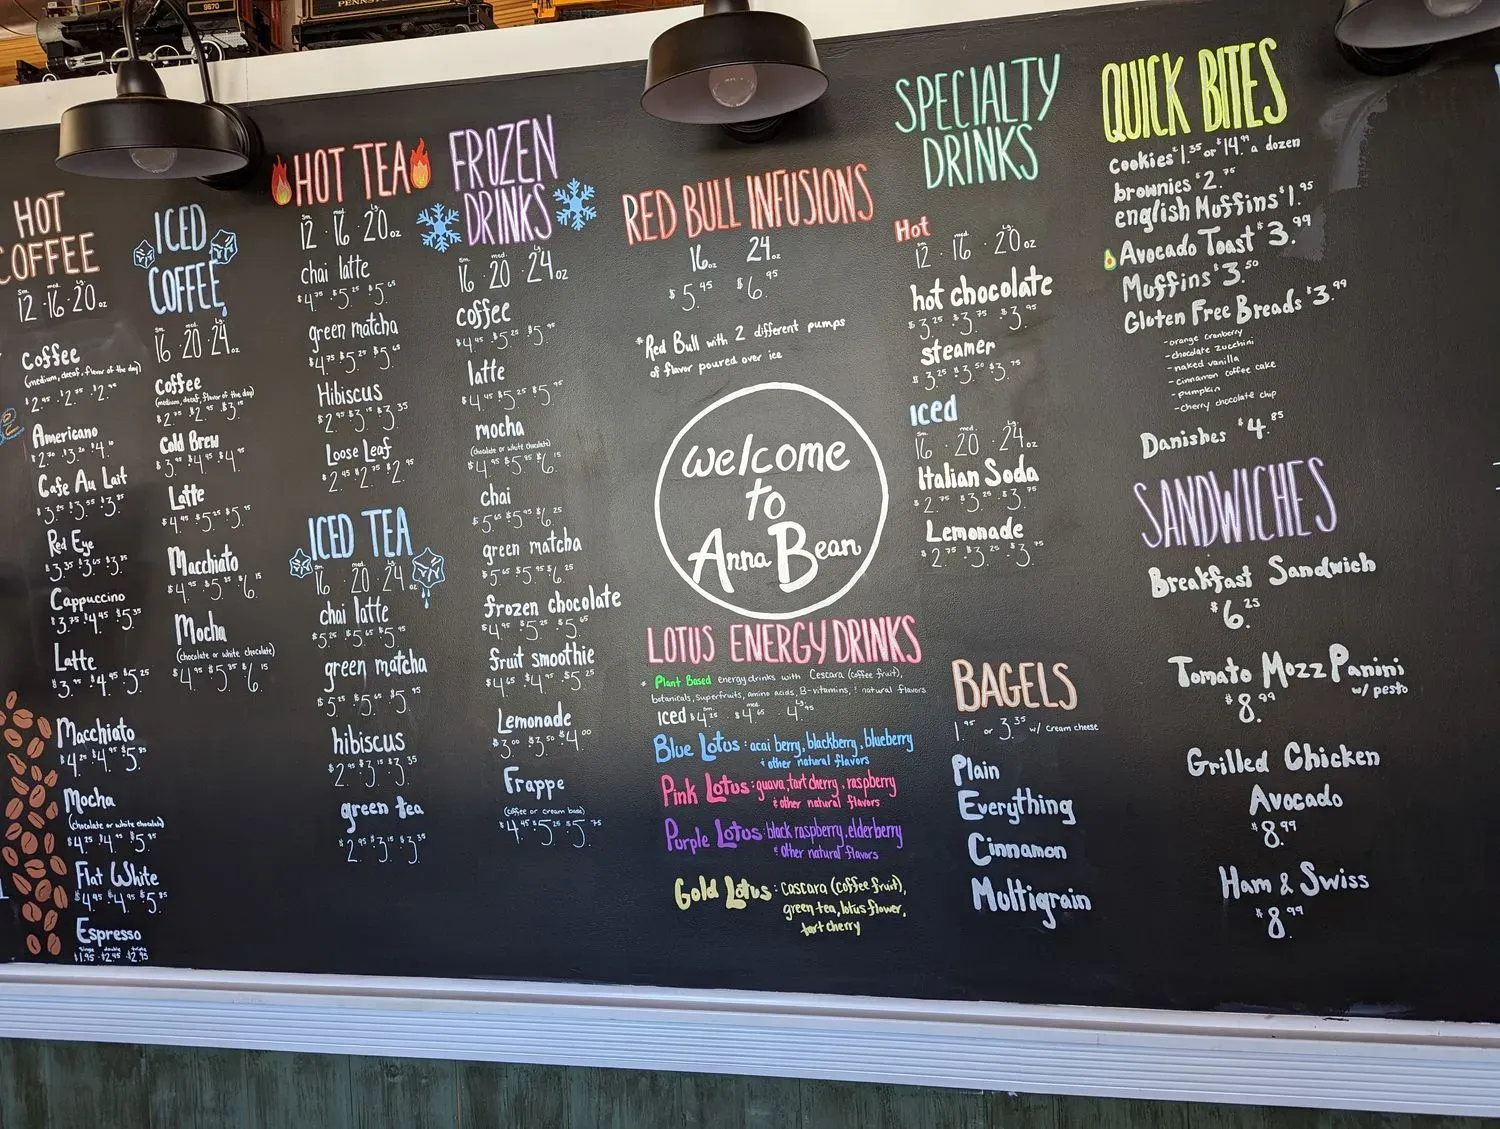 9870
HOT
COFFEE
12 · 16 · 20 oz
Coffee
(medium, decaf, flavor of the day)
$2.45 $2.75 $2.95
Americano
Cafe Au Lait
$3.25 $3.55 $3.85
Red Eye
$3.35 $3.65 $3.95
Cappuccino
$3.75 $4.45 $5.35
Latte
$3.95 $4.95 $5.25
Macchiato
Mocha
(chocolate or white chocolate)
$4.25 $4.95 $5.95
Flat White
$4.45 $4.95 $5.25
Espresso
single double triple
$1.95 $2.45 $2.95
ICED
COFFEE
sm. med. Lg.
16 · 20 · 24 oz
Coffee
(medium, decaf, flavor of the day)
$2.75 $2.95 $3.15
Cold Brew
$3.95 $4.45 $4.95
Latte
$4.45 $5.25 $5.95
Macchiato
$4.95 $5.35 $6.15
Mocha
(chocolate or white chocolate)
$4.95 $5.35 $6.15
HOT TEA
sm. med. Lg.
12 · 16 · 20 oz
chai latte
$4.75 $5.25 $5.65
green matcha
$4.75 $5.25 $5.65
Hibiscus
$2.95 $3.15 $3.35
Loose Leaf
$2.45 $2.75 $2.95
ICED TEA
sm. med. Lg.
16 · 20 · 24 oz
chai latte
$5.25 $5.65 $5.95
green matcha
$5.25 $5.65 $5.95
hibiscus
$2.95 $3.15 $3.35
green tea
$2.95 $3.15 $3.35
FROZEN
DRINKS
sm. med. Lg.
16 · 20 · 24 oz
coffee
$4.45 $5.25 $5.95
latte
$4.45 $5.25 $5.95
mocha
(chocolate or white chocolate)
$4.95 $5.35 $6.15
chai
$5.65 $5.95 $6.25
green matcha
$5.65 $5.95 $6.25
frozen chocolate
$4.95 $5.25 $5.65
fruit smoothie
$4.65 $4.95 $5.25
Lemonade
$3.00 $3.50 $4.00
Frappe
(coffee or cream base)
$4.95 $5.25 $5.75
RED BULL INFUSIONS
16 oz 24 oz
$5.45 $6.95
*Red Bull with 2 different pumps
of flavor poured over ice
welcome
to
Anna Bean
LOTUS ENERGY DRINKS
* Plant Based energy drinks with Cascara (coffee fruit),
botanicals, superfruits, amino acids, B-vitamins, & natural flavors
Iced sm. $4.25 med. $4.65 Lg. 4.95
Blue Lotus: acai berry, blackberry, blueberry
& other natural flavors
Pink Lotus: guava, tart cherry, raspberry
& other natural flavors
Purple Lotus: black raspberry, elderberry
& Other natural flavors
Gold Lotus: Cascara (coffee fruit),
green tea, lotus flower,
tart cherry
SPECIALTY
DRINKS
Hot
sm. med. Lg.
12 · 16 · 20 oz
hot chocolate
$3.25 $3.75 $3.95
steamer
$3.25 $3.50 $3.75
Iced
sm. med. Lg.
16 · 20 · 24 oz
Italian Soda
$2.75 $3.25 $3.75
Lemonade
$2.75 $3.25 $3.75
BAGELS
1.95 or 3.35 w/ cream cheese
Plain
Everything
Cinnamon
Multigrain
QUICK BITES
cookies $1.35 or $14.99 a dozen
brownies $2.75
english Muffins $1.95
Avocado Toast $3.99
Muffins $3.50
Gluten Free Breads $3.99
- orange cranberry
- chocolate zucchini
- naked vanilla
- cinnamon coffee cake
- pumpkin
- cherry chocolate chip
Danishes $4.85
SANDWICHES
Breakfast Sandwich
$6.25
Tomato Mozz Panini
w/ pesto
$8.99
Grilled Chicken
Avocado
$8.99
Ham & Swiss
$8.99